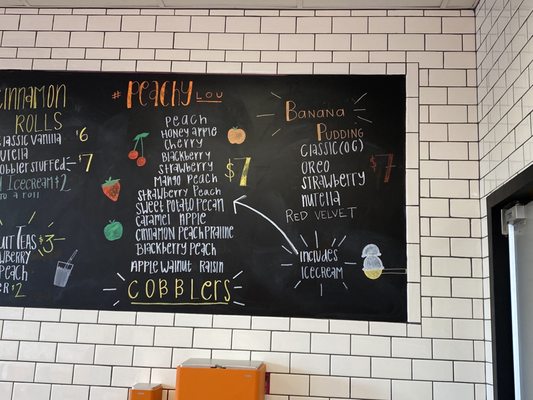 Cinnamon
Rolls
Classic Vanilla $6
Nutella
Cobbler Stuffed $7
Icecream $2
to a roll
Fruit Teas $3
Peach
$2
#Peachy Lou
Peach
Honey Apple
Cherry
Blackberry
Strawberry
Mango Peach
Strawberry Peach
Sweet Potato Pecan
Caramel Apple
Cinnamon Peach Praline
Blackberry Peach
Apple Walnut Raisin
$7
Cobblers
Banana
Pudding
Classic (OG)
Oreo
Strawberry
Nutella
Red Velvet
$7
includes
icecream